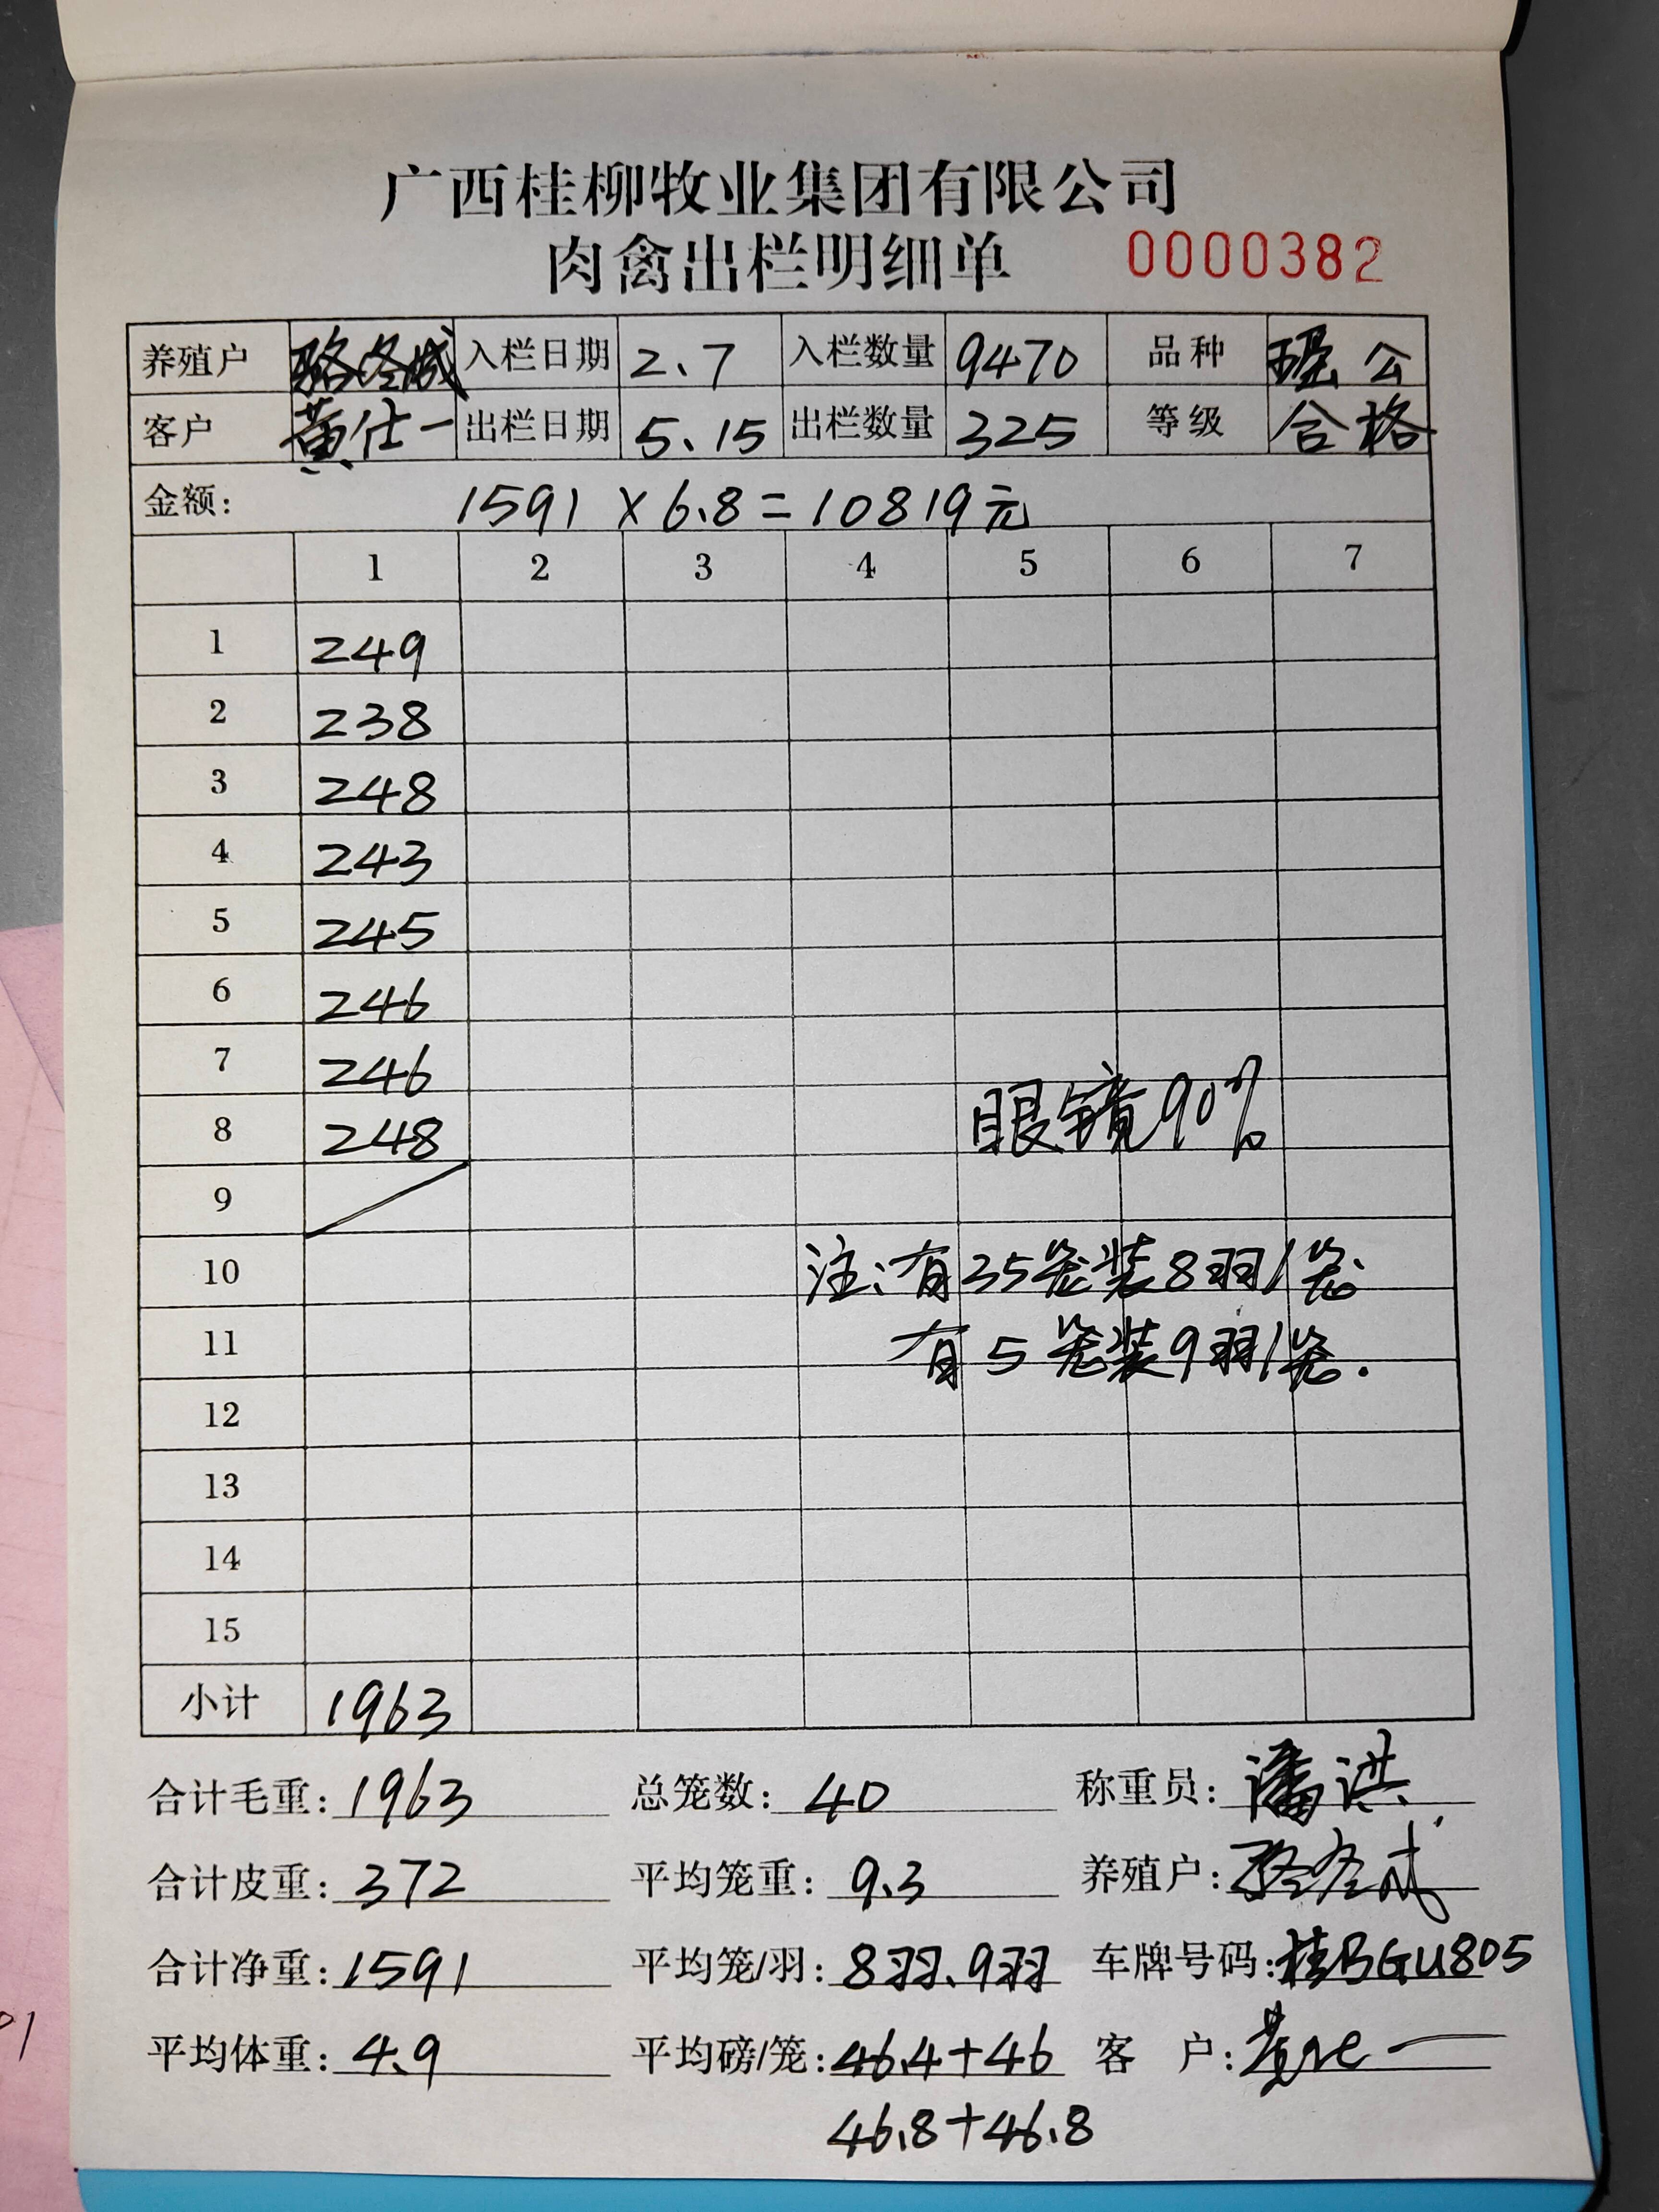 广西桂柳牧业集团有限公司
肉禽出栏明细单 0000382
养殖户 骆冬成 入栏日期 2.7 入栏数量 9470 品种 瑶公
客户 黄仕一 出栏日期 5.15 出栏数量 325 等级 合格
金额: 1591 × 6.8 = 10819元
1 2 3 4 5 6 7
1 249
2 238
3 248
4 243
5 245
6 246
7 246
8 248 眼镜90%
9
10 注:有35笼装8羽/笼
11 有5笼装9羽/笼.
12
13
14
15
小计 1963
合计毛重: 1963 总笼数: 40 称重员: 潘洪
合计皮重: 372 平均笼重: 9.3 养殖户: 骆冬成
合计净重: 1591 平均笼/羽: 8羽、9羽 车牌号码: 桂BGU805
平均体重: 4.9 平均磅/笼: 46.4+46 客户: 黄仕一
46.8+46.8